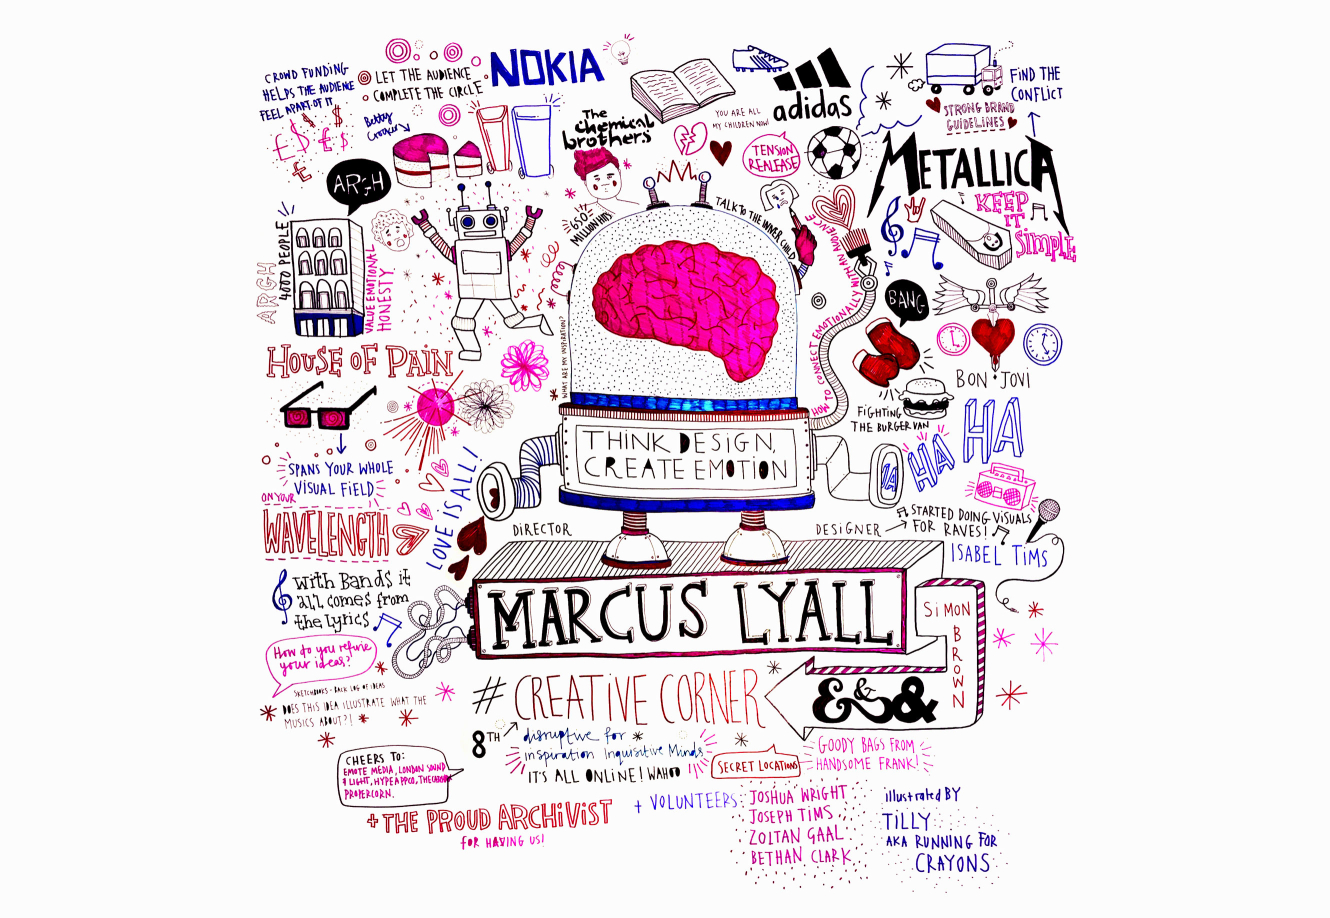 CROWD FUNDING
HELPS THE AUDIENCE
FEEL APART OF IT
LET THE AUDIENCE
COMPLETE THE CIRCLE
Betty
Crocker
NOKIA
The
chemical
brothers
YOU ARE ALL
MY CHILDREN NOW!
adidas
TENSION
REALEASE
FIND THE
CONFLICT
STRONG BRAND
GUIDELINES
METALLICA
KEEP
IT
SIMPLE
ARGH
ARGH
4000 PEOPLE
VALUE EMOTIONAL
HONESTY
HOUSE OF PAIN
650
MILLION HITS
TALK TO THE INNER CHILD
WHAT ARE MY INSPIRATION?
HOW TO CONNECT EMOTIONALLY WITH AN AUDIENCE
BANG
BON JOVI
FIGHTING
THE BURGER VAN
HA HA HA
THINK DESIGN,
CREATE EMOTION
SPANS YOUR WHOLE
VISUAL FIELD
ON YOUR
WAVELENGTH
LOVE IS ALL!
DIRECTOR
DESIGNER
STARTED DOING VISUALS
FOR RAVES!
ISABEL TIMS
with Bands it
all comes from
the lyrics
MARCUS LYALL
SIMON
BROWN
How do you refine
your ideas?
SKETCHBOOKS - BACK LOG OF IDEAS
DOES THIS IDEA ILLUSTRATE WHAT THE
MUSICS ABOUT?!
# CREATIVE CORNER
E&&
8TH
disruptive for
inspiration Inquisitive Minds
IT'S ALL ONLINE! WAHOO!!
SECRET LOCATIONS
GOODY BAGS FROM
HANDSOME FRANK!
CHEERS TO:
EMOTE MEDIA, LONDON SOUND
& LIGHT, HYPE APPCO,
PROPERCORN.
+ THE PROUD ARCHIVIST
FOR HAVING US!
+ VOLUNTEERS:
JOSHUA WRIGHT
JOSEPH TIMS
ZOLTAN GAAL
BETHAN CLARK
illustrated BY
TILLY
AKA RUNNING FOR
CRAYONS